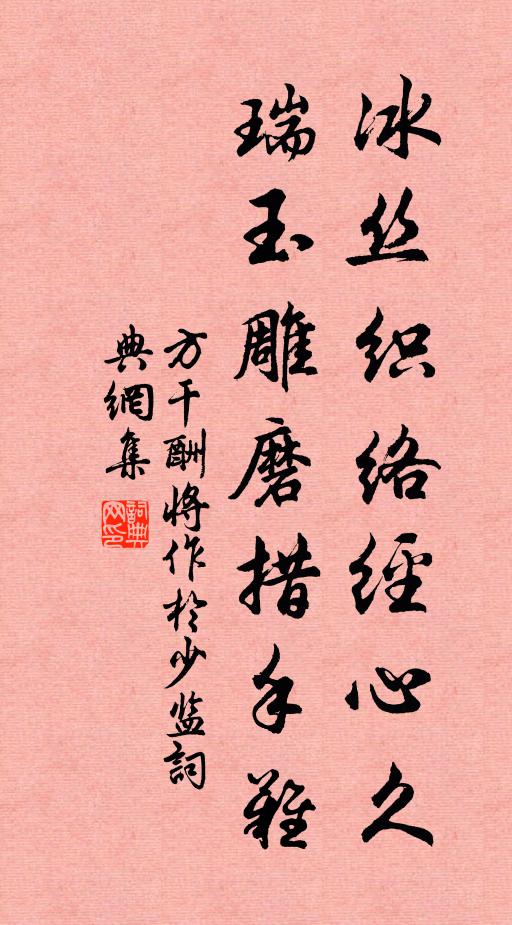 冰丝织络经心久
瑞玉雕磨措手難
方干酬将作於少监詞
典網集
詞典
网印